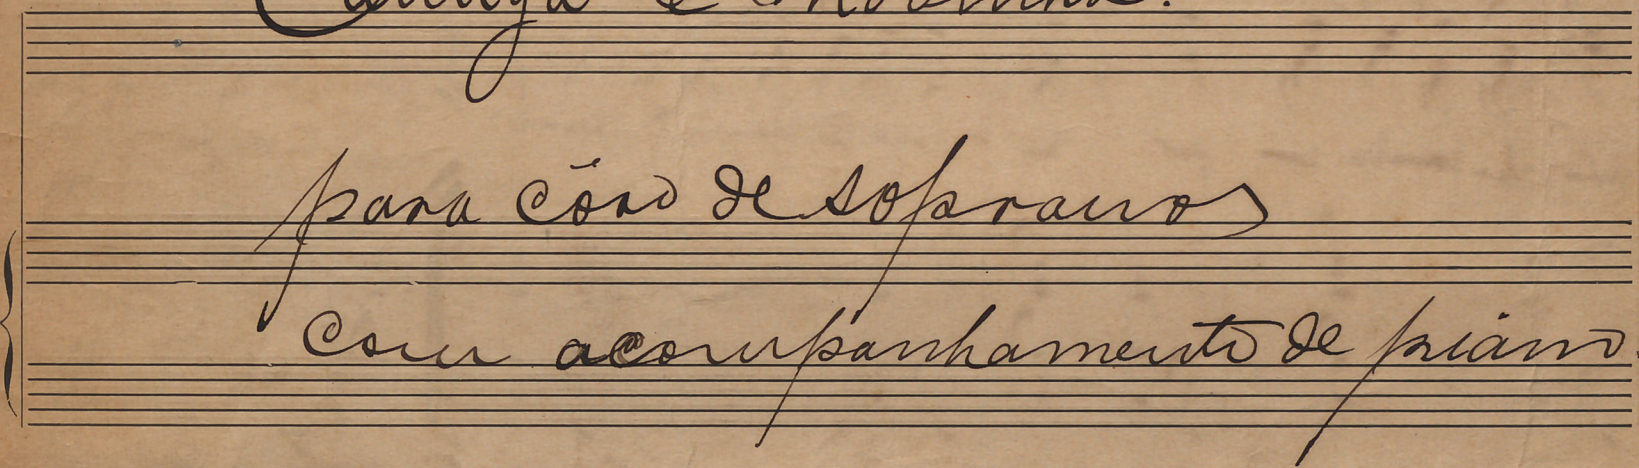 para côro de sopranos
com acompanhamento de piano.